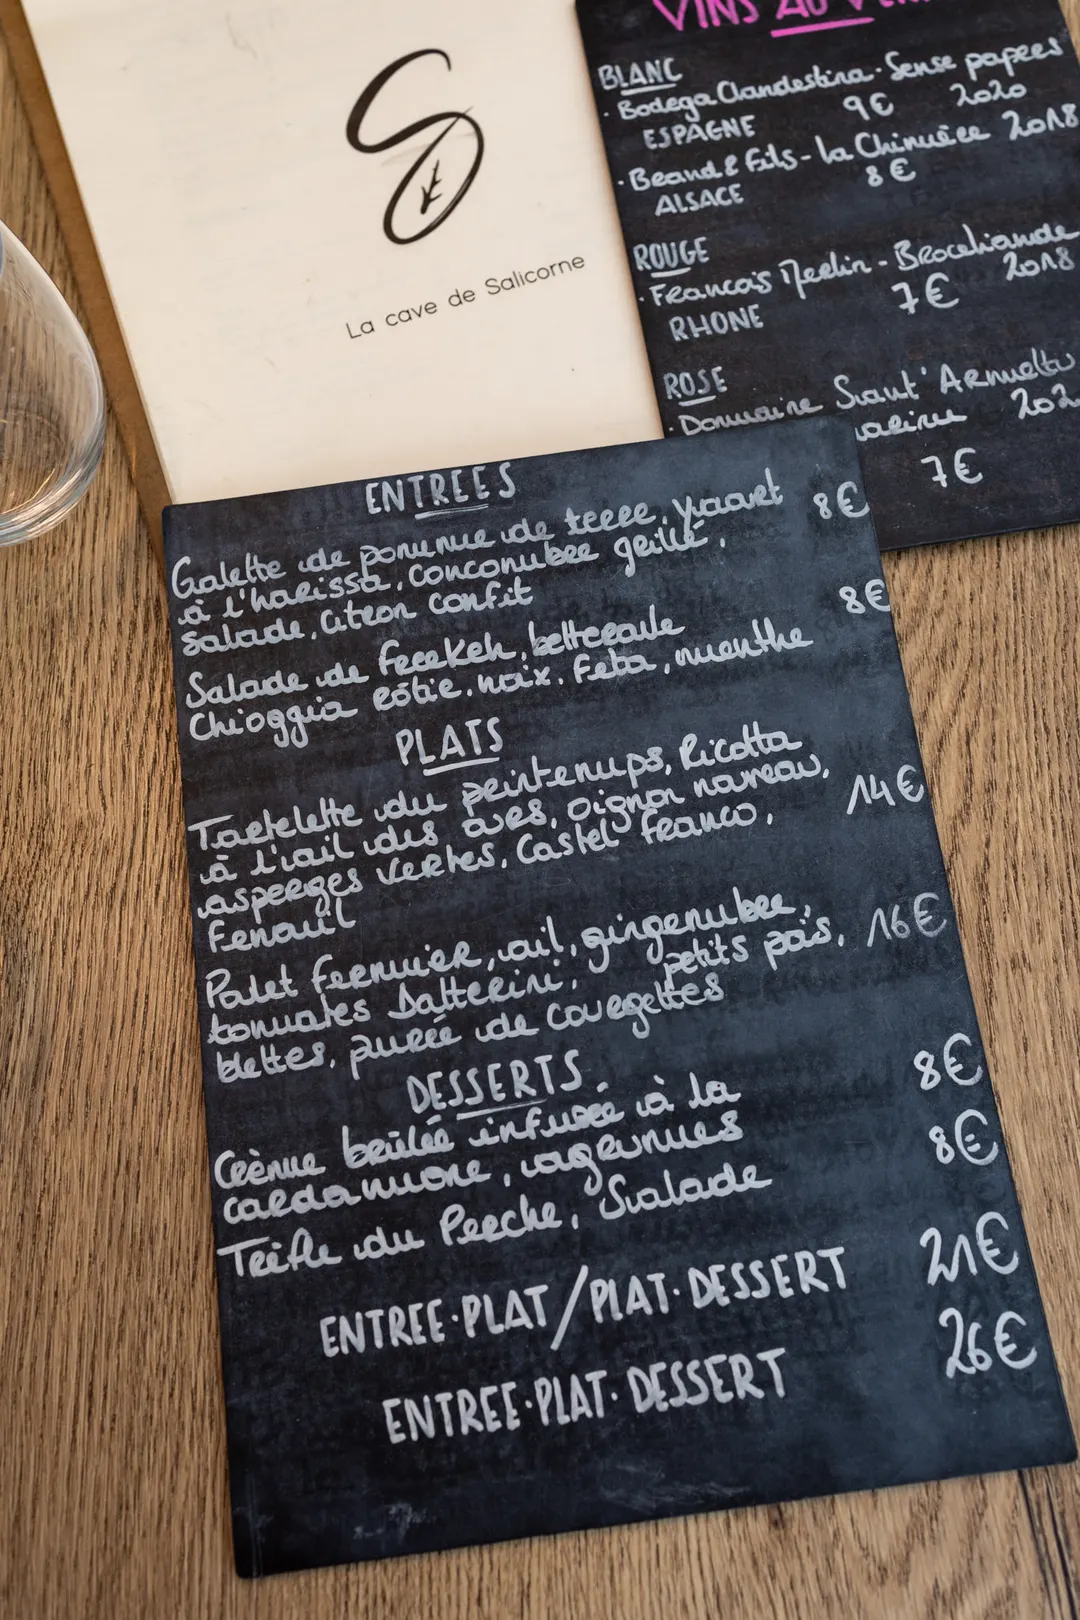 VINS AU VERRE
BLANC
· Bodega Clandestina · Sense papers
9€ 2020
ESPAGNE
· Brand & Fils - La Chimère 2018
8€
ALSACE
ROUGE
· Francois Merlin - Broceliande
7€ 2018
RHONE
ROSE
· Domaine Sant' Armettu
202
7€
La cave de Salicorne
ENTREES
Galette de pomme de terre, yaourt 8€
à l'harissa, concombre grillé,
Salade, citron confit
Salade de freekeh, betterave 8€
Chioggia rôtie, noix, Feta, menthe
PLATS
Tartelette du printemps, Ricotta
à l'ail des ours, oignon nouveau, 14€
asperges vertes, Castel Franco,
Fenouil
Poulet fermier, ail, gingembre, 16€
tomates Datterini, petits pois,
blettes, purée de courgettes
DESSERTS
Crème brûlée infusée à la 8€
cardamome, agrumes
Trèfle du Perche, Salade 8€
ENTREE·PLAT/PLAT·DESSERT 21€
ENTREE·PLAT·DESSERT 26€